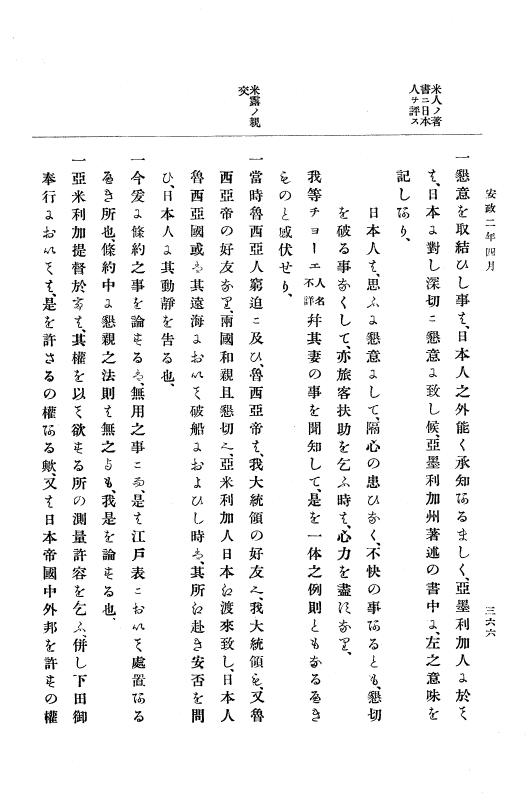 安政二年四月
三六六
米人ノ著
書ニ日本
人ヲ評ス
米露ノ親
交
一懇意を取結ひし事も、日本人之外能く承知あるましく、亞墨利加人ニ於て
も、日本ニ對し深切ニ懇意ニ致し候、亞墨利加州著述の書中ニ、左之意味を
記しあり、
日本人も、思ふニ懇意ニして、隔心の患ひなく、不快の事あるとも、懇切
を破る事なくして、亦旅客扶助を乞ふ時も、心力を盡にあり、
我等チョーエ人名不詳幷其妻の事を聞知して、是を一体之例則ともなるへき
ものと感伏せり、
一當時魯西亞人窮迫ニ及ひ、魯西亞帝も、我大統領の好友へ、我大統領も、又魯
西亞帝の好友なり、兩國和親且懇切へ、亞米利加人日本に渡來致し、日本人
魯西亞國或は其遠海ニおゐて破船ニおよひし時は、其所に赴き安否を問
ひ、日本人ニ其動靜を告る也、
一今爰ニ條約之事を論するは、無用之事ニ而、是は江戸表ニおゐて處置ある
へき所也、條約中ニ懇親之法則も無之とも、我是を論する也、
一亞米利加提督於ても、其權を以て欲する所の測量許容を乞ふ、併し下田御
奉行ニおゐても、是を許さるの權ある歟、又は日本帝國中外邦を許すの權